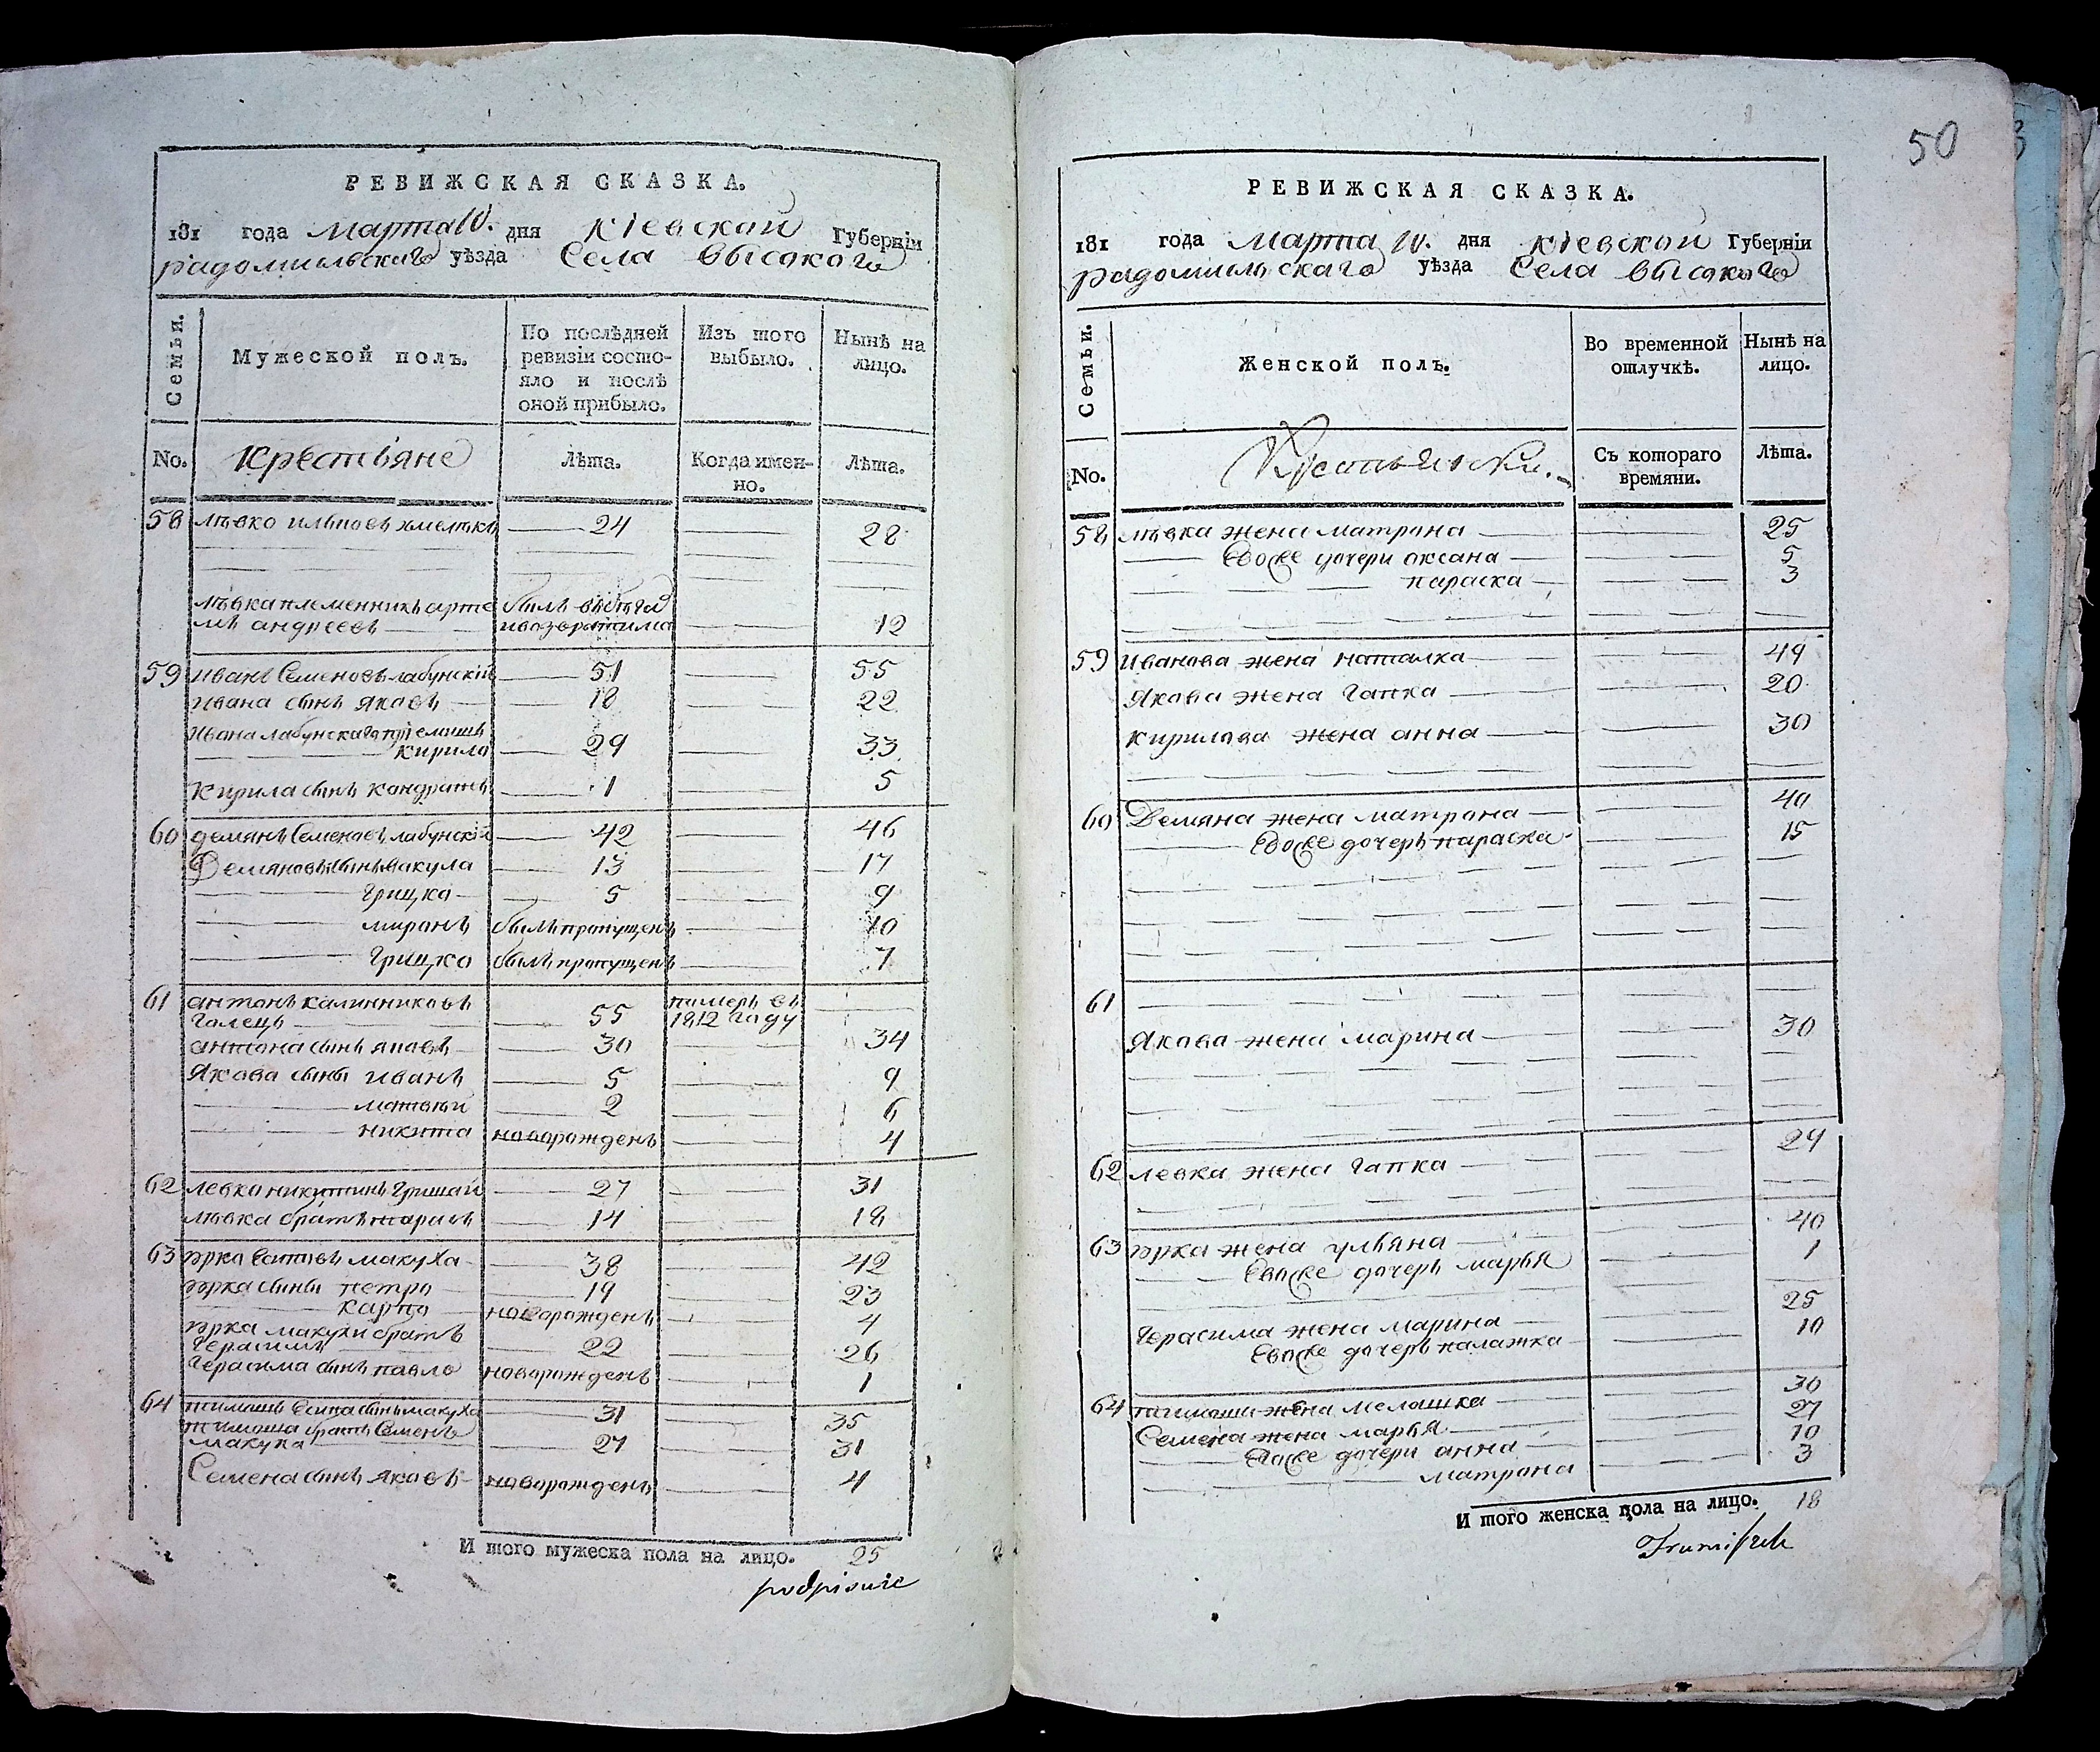 50
РЕВИЖСКАЯ СКАЗКА.
181 года марта 10. дня кіевской Губерніи
радомисльскаго уѣзда Села высокого
Семьи.
Мужеской полъ.
По послѣдней
ревизіи состо-
яло и послѣ
оной прибыло.
Изъ того
выбыло.
Нынѣ на
лицо.
No. крестьяне Лѣта. Когда имен-
но.
Лѣта.
58 лѣвко ильповъ хмелѣкъ 24 28
лѣвка племенникъ арте былъ въбѣга
мъ андреевъ ивозвратилса 12
59 иванъ Семеновъ лабунскій 51 55
ивана сынъ яковъ 18 22
ивана лабунскаго пріемишъ
кирило 29 33
кирила сынъ кондратъ 1 5
60 демянъ Семеновъ лабунскій 42 46
Демяновы сынъ вакула 13 17
грицко 5 9
миронъ былъ пропущенъ 10
грицко былъ пропущенъ 7
61 антонъ калинниковъ померъ въ
галецъ 55 1812 году
антона сынъ яковъ 30 34
якова сыны иванъ 5 9
матвѣй 2 6
никита новорожденъ 4
62 левко никитинъ гришай 27 31
лѣвка братъ тарасъ 14 18
63 юрко Есиповъ макуха 38 42
юрка сыны петро 19 23
карпо новорожденъ 4
юрка макухи братъ
герасимъ 22 26
герасима сынъ павло новорожденъ 1
64 тимошъ Есипа сынъ макуха 31 35
тимоша братъ Семенъ
макуха 27 31
Семена сынъ яковъ новорожденъ 4
И того мужеска пола на лицо. 25
podpisuie
РЕВИЖСКАЯ СКАЗКА.
181 года марта 10. дня кіевской Губерніи
радомисльскаго уѣзда Села высокого
Семьи.
Женской полъ.
Во временной
отлучкѣ.
Нынѣ на
лицо.
No. Крестьянки. Съ котораго
времяни.
Лѣта.
58 лѣвка жена матрона 25
Евоже дочери оксана 5
параска 3
59 иванова жена наталка 49
якова жена гапка 20
кирилова жена анна 30
60 Демяна жена матрона 40
Евоже дочеръ параска 15
61
якова жена марина 30
62 левка жена гапка 29
63 юрка жена ульяна 40
Евоже дочеръ марья 1
герасима жена марина 25
Евоже дочеръ палажка 10
64 тимоша жена мелашка 30
Семена жена марья 27
Евоже дочери анна 10
матрона 3
И того женска пола на лицо. 18